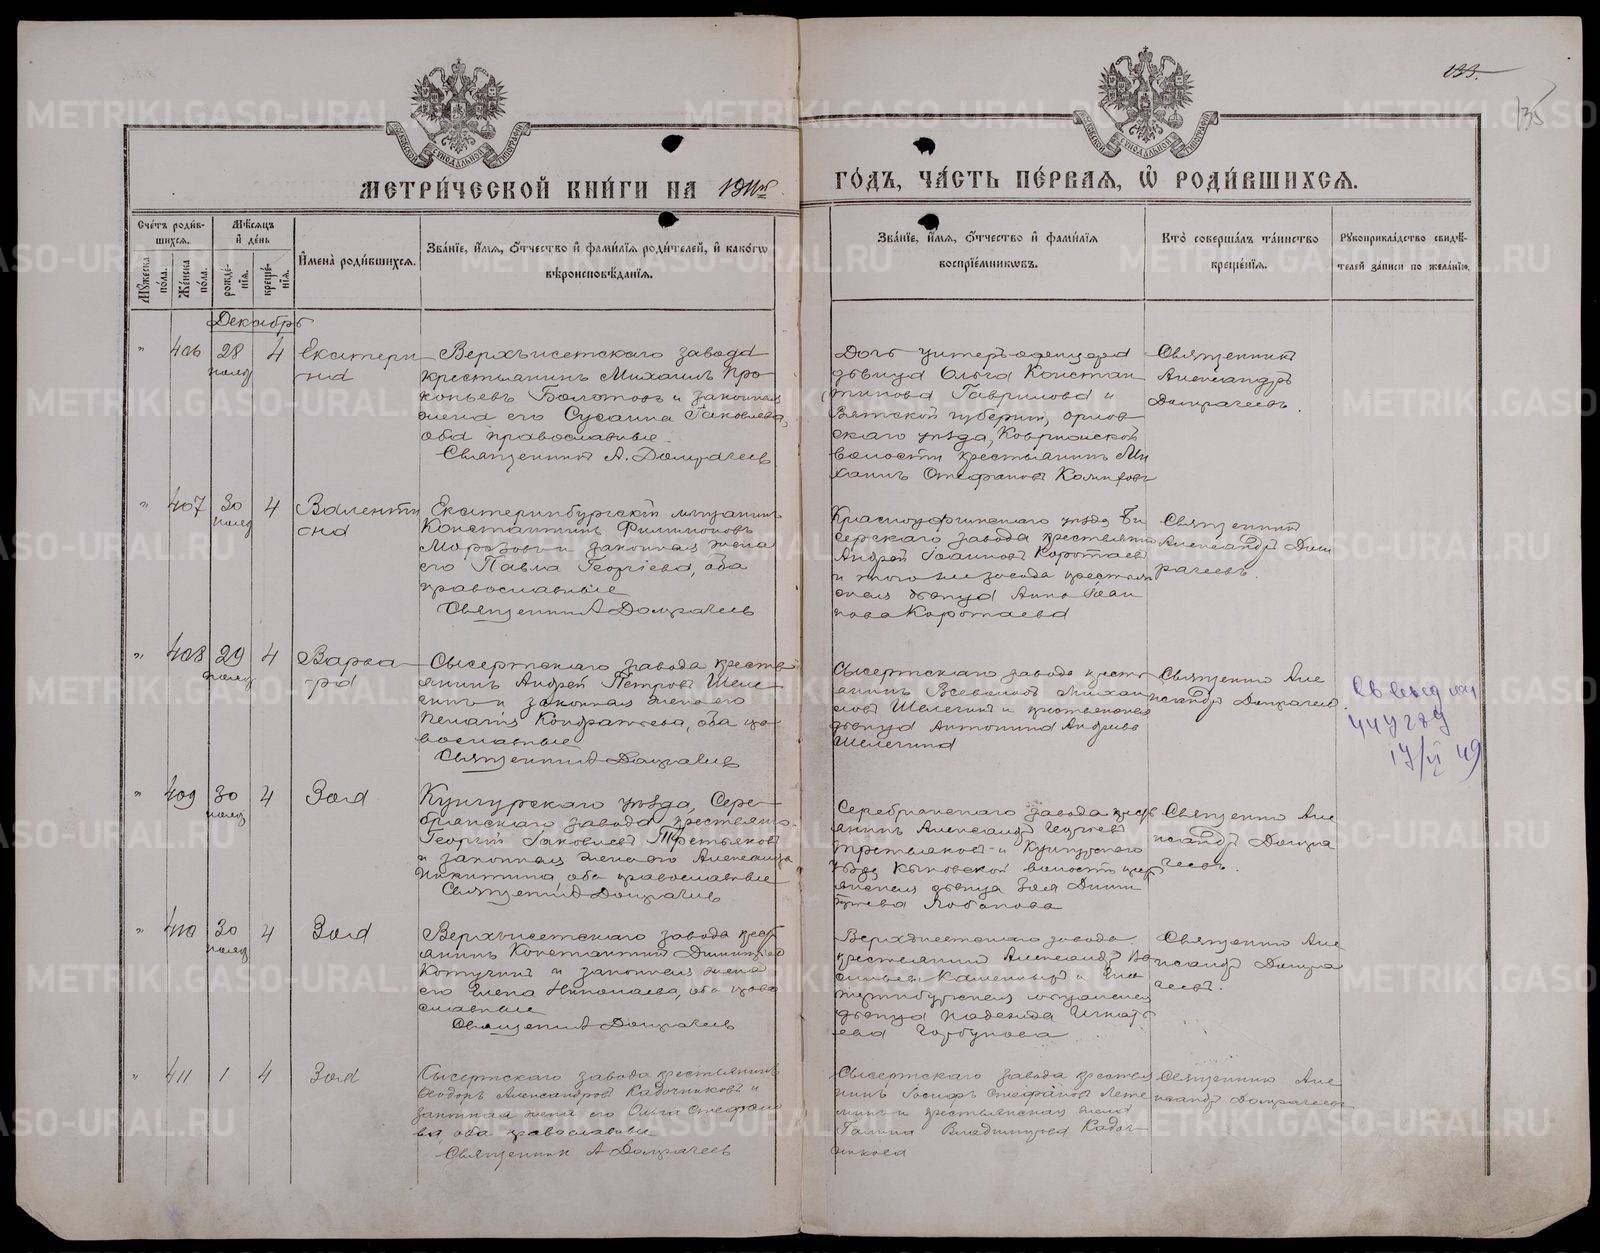 133.
135
МЕТРИ́ЧЕСКОЙ КНИ́ГИ НА 1911й
ГО́ДЪ, ЧА́СТЬ ПЕ́РВАЯ, Ѡ҆ РОДИ́ВШИХСЯ.
Сче́тъ роди́в-
шихся.
Мꙋжеска по́ла.
Же́нска по́ла.
Мѣ́сяцъ
и҆ де́нь
рожде́-
нїя.
креще́-
нїя.
И҆мена̀ роди́вшихся.
Зва́нїе, и҆́мя, ѻ҆́тчество и҆ фами́лїя роди́телей, и҆ како́гѡ
вѣроисповѣ́данїя.
Зва́нїе, и҆́мя, ѻ҆́тчество и҆ фами́лїя
воспрїе́мниковъ.
Кто̀ соверша́лъ та́инство
креще́нїя.
Рꙋкоприкла́дство свидѣ́-
телей за́писи по жела́нїю.
Декабрь
" 406 28 4 Екатери
нояб на
Верхъисетскаго завода
крестьянинъ Михаилъ Про-
копьевъ Болотовъ и законная
жена его Сусанна Яковлева,
оба православные.
Священник А. Домрачеев
Дочь унтеръ-офицера
дѣвица Ольга Констан
тинова Гаврилова и
Вятской губернии, орлов
скаго уѣзда,
волости крестьянинъ Ми
хаилъ Стефановъ
Священник
Александръ
Домрачеевъ.
" 407 30 4 Валенти
нояб на
Екатеринбургский мѣщанинъ
Константинъ Филимоновъ
Морозов и законная жена
его Павла Георгиева, оба
православные
Священник А Домрачеев
Красноуфимскаго уѣзда Би
серскаго завода крестьянин
Андрей Иоаннов Коротаев
и того же завода крестьян
ская дѣвица Анна Иоан
нова Коротаева
Священник
Александръ Дом
рачеевъ.
" 408 29 4 Варва
нояб ра
Сысертскаго завода кресть
янинъ Андрей Петровъ Шеле
гинъ и законная жена его
Пелагия Кондратьева, оба пра
вославные
Священник А Домрачеев
Сысертскаго завода кресть
янинъ Всеволод Михаи
лов Шелегин и крестьянская
дѣвица Антонина Андреева
Шелегина
Священник Але
ксандр Домрачеев.
17/VI 49
" 409 30 4 Зоя
нояб
Кунгурскаго уѣзда, Сере-
брянскаго завода крестьянин
Георгий Яковлев Третьяков
и законная жена его Александра
Никитина оба православные
Священник А Домрачеев
Серебрянскаго завода крес
янинъ Александр Георгиев
Третьяков и Кунгурскаго
уѣзда Кыновской волости крес
янская дѣвица Зоя Дими
триева Лобанова
Священник Але
ксандр Домра
чеевъ.
" 410 30 4 Зоя
нояб
Верхъисетскаго завода крес
янинъ Константин Димитриев
и законная жена
его Елена Николаева, оба право
славные
Священник А Домрачеев
Верхъисетскаго завода
крестьянин Александр Ва
сильев и Ека
теринбургская мѣщанская
дѣвица Надежда Игнать
ева Горбунова
Священник Але
ксандр Домра
чеевъ.
" 411 1 4 Зоя
Сысертскаго завода крестьянинъ
Ѳеодоръ Александров Кадочников и
законная жена его Ольга Стефано
ва, оба православные
Священник А Домрачеев
Сысертскаго завода крестья
нинъ Иосиф Стефанов
и крестьянская жена
Галина Владимирова Кадоч
никова
Священник Але
ксандр Домрачеевъ